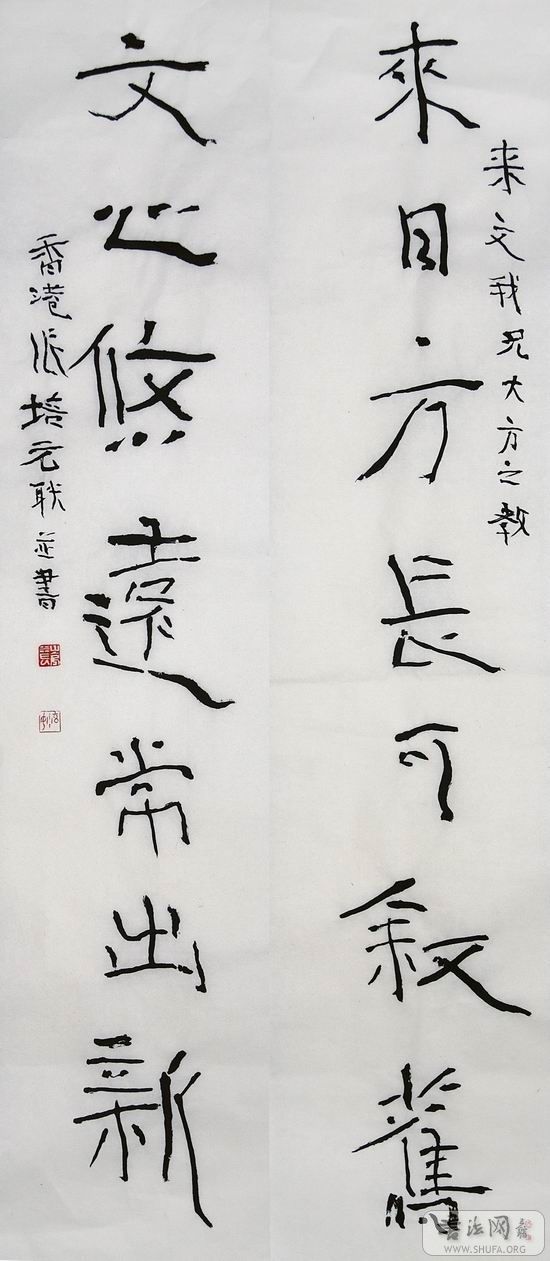 来文我兄大方之教
來日方長可敘舊
文心悠遠常出新
香港张培元联並書
书法网
WWW.SHUFA.ORG